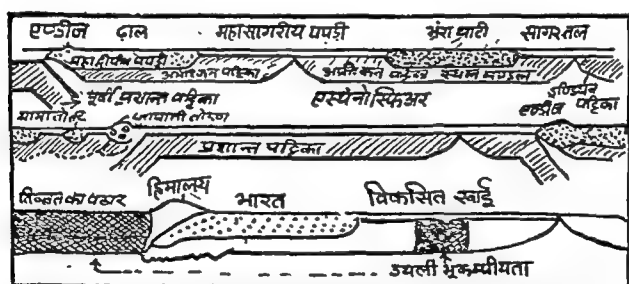 एण्डीज ढाल महासागरीय पपड़ी भ्रंश घाटी सागर तल
महाद्वीपीय पपड़ी अमेरिकन पट्टिका अफ्रीकन पट्टिका स्थल मण्डल
पूर्वी प्रशान्त पट्टिका एस्थेनोस्फिअर
जापानी तोरण एण्डीज पट्टिका
प्रशान्त पट्टिका
तिब्बत का पठार हिमालय भारत विकसित खाई
उथली भूकम्पीयता